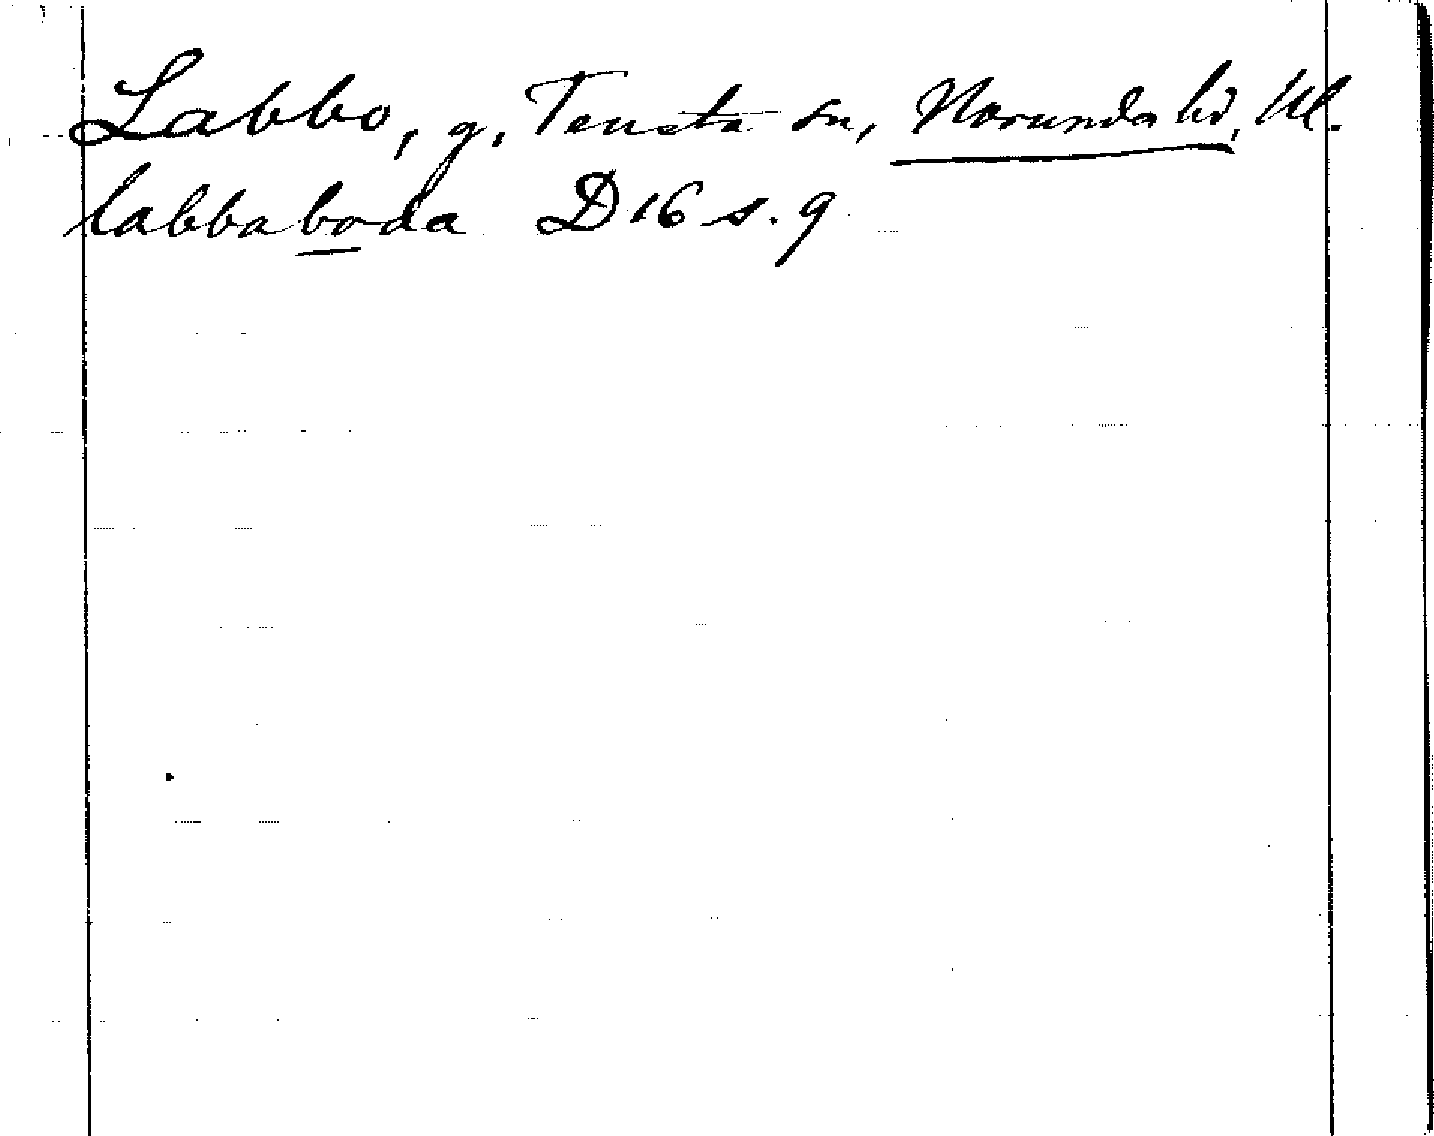 Labbo, g, Tensta sn, Norunda hd, Upl.
labbaboda D 16 s. 9